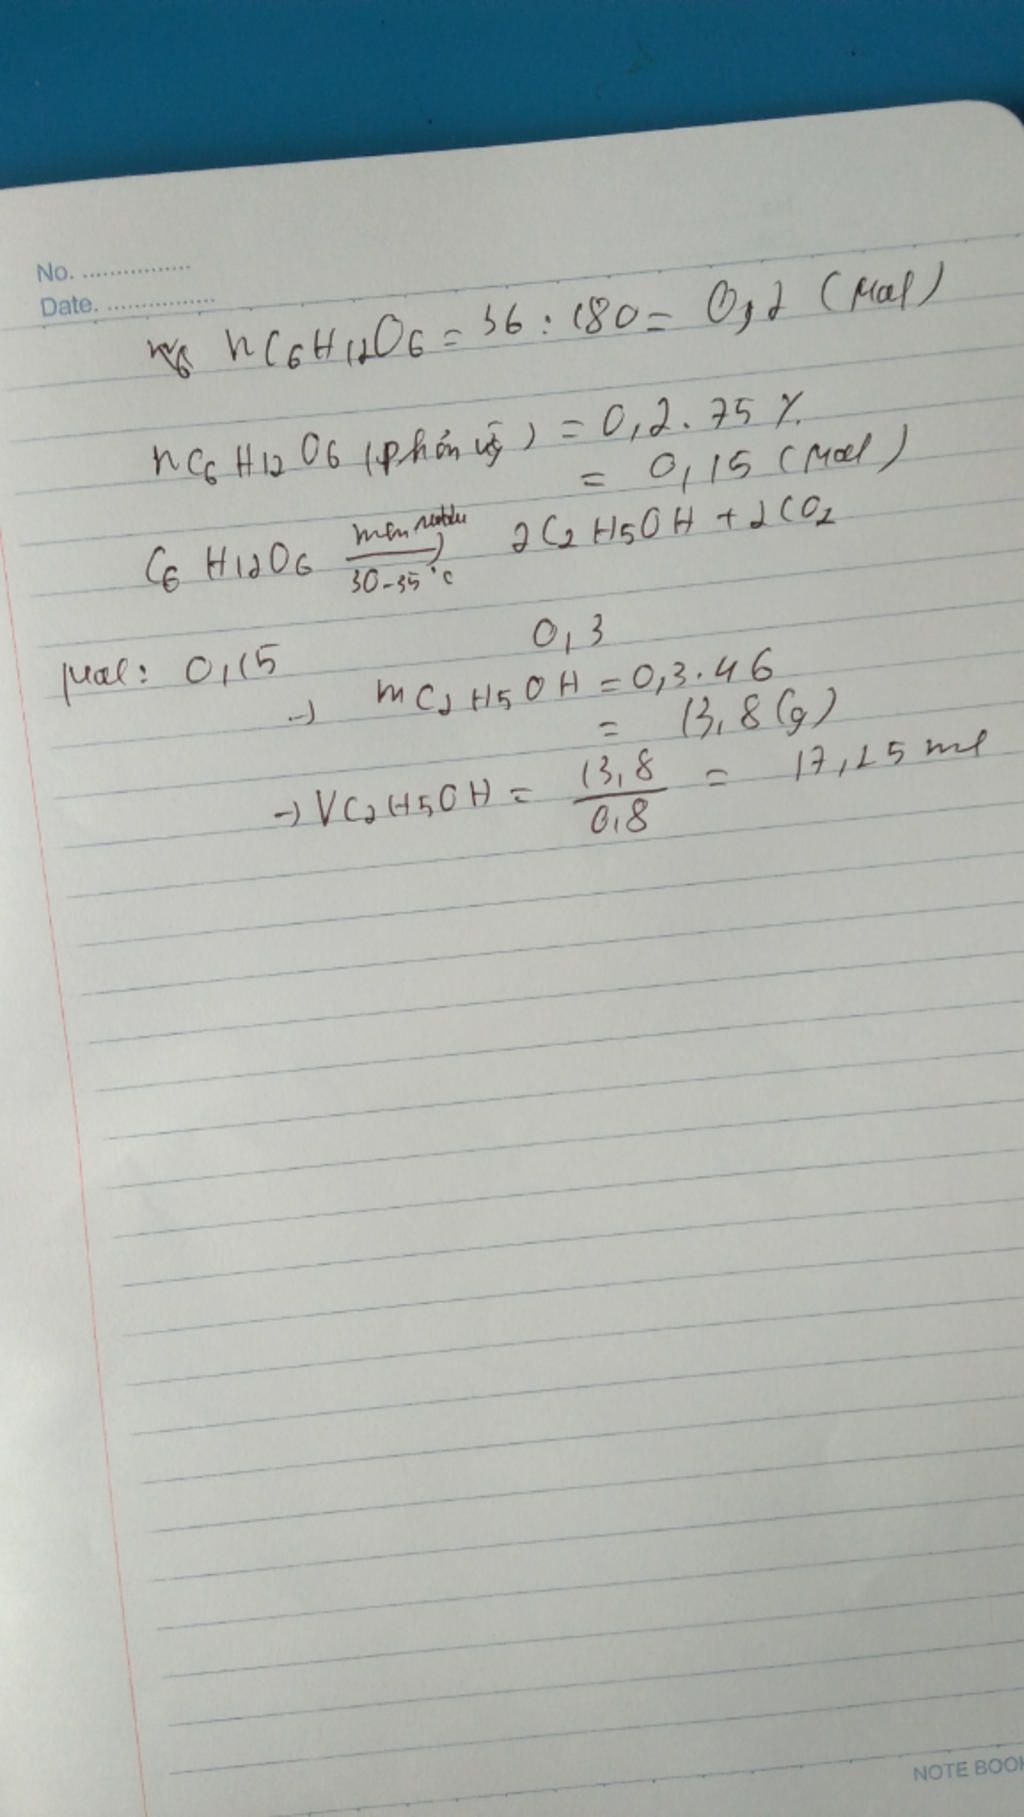 No. ................
Date. ................
nC6H12O6 = 36 : 180 = 0,2 (mol)
nC6H12O6 (phản ứng) = 0,2 . 75 %
= 0,15 (mol)
C6H12O6 men rượu 30-35°C → 2C2H5OH + 2CO2
Mol: 0,15 0,3
→ mC2H5OH = 0,3 . 46
= 13,8 (g)
→ VC2H5OH = 13,8 / 0,8 = 17,25 ml
NOTE BOOK